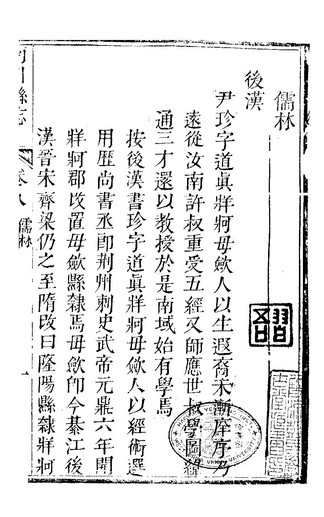 儒林
後漢
尹珍字道眞牂牁毋歛人以生遐裔未漸庠序乃
遠從汝南許叔重受五經又師應世叔學圖緯
通三才還以教授於是南域始有學焉
按後漢書珍字道眞牂牁毋歛人以經術選
用歷尚書丞郎荆州刺史武帝元鼎六年開
牂牁郡改置毋歛縣隸焉毋歛即今綦江後
漢晉宋齊梁仍之至隋改曰隆陽縣隸牂牁
川縣志
卷八
儒林
一